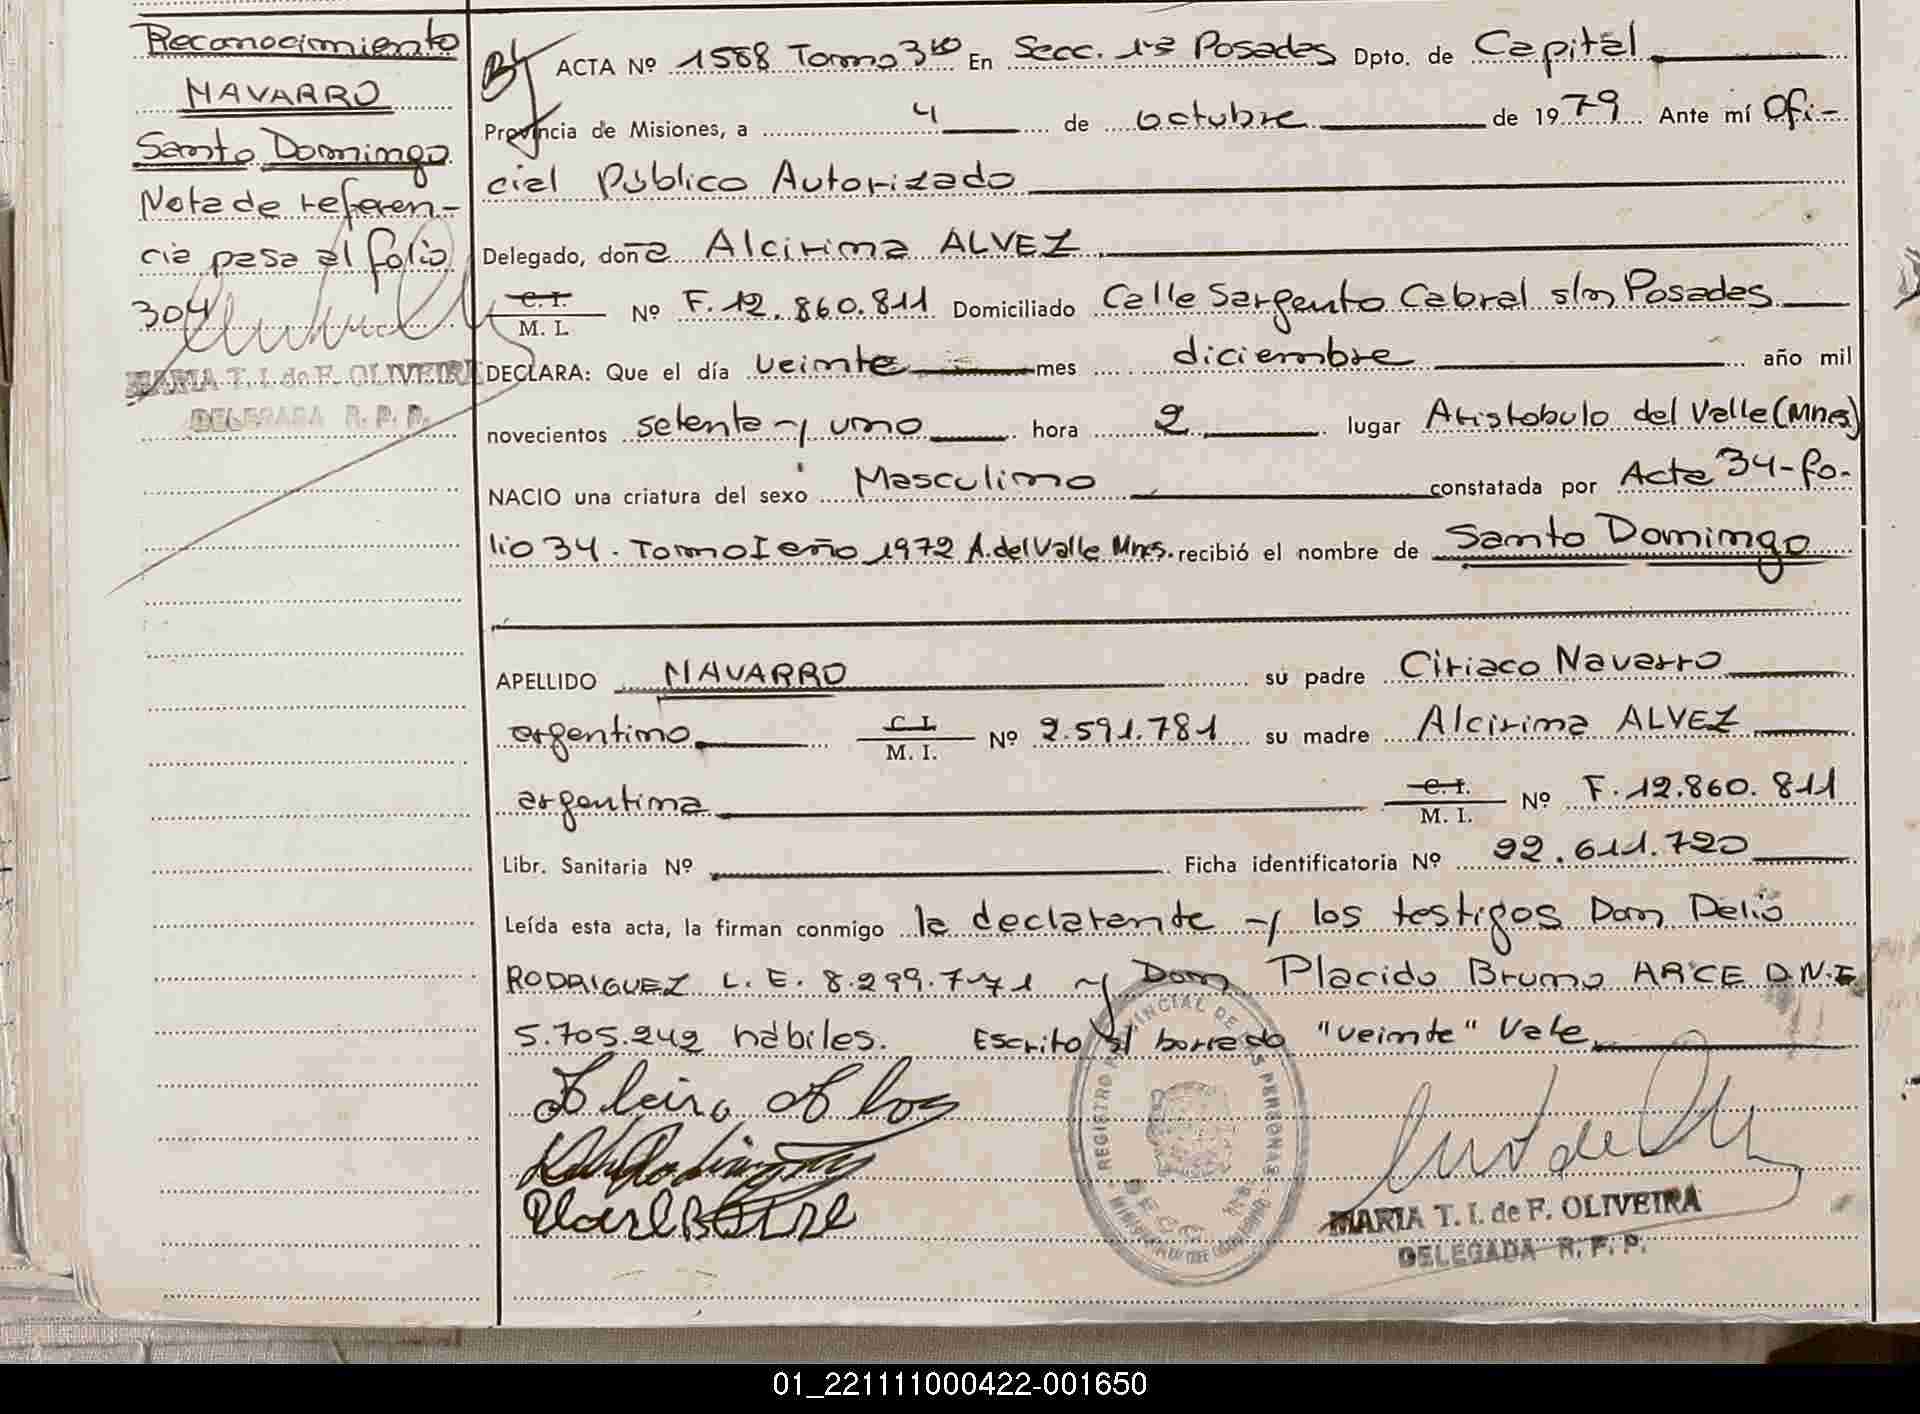 Reconocimiento
NAVARRO
Santo Domingo
Nota de referen-
cia pasa al folio
304
MARIA T. I. de F. OLIVEIRA
DELEGADA R. P. P.
ACTA Nº 1588 Tomo 3ro En Secc. 1ra Posadas Dpto. de Capital
Provincia de Misiones, a 4 de octubre de 1979 Ante mí Ofi-
cial Público Autorizado
Delegado, doña Alcirima ALVEZ
C. I.
M. I. Nº F. 12.860.811 Domiciliado Calle Sargento Cabral s/n Posadas
DECLARA: Que el día veinte mes diciembre año mil
novecientos setenta y uno hora 2 lugar Aristobulo del Valle (Mnes)
NACIO una criatura del sexo Masculino constatada por Acta 34-fo-
lio 34. Tomo I año 1972 A. del Valle Mnes. recibió el nombre de Santo Domingo
APELLIDO NAVARRO su padre Ciriaco Navarro
argentino C. I. M. I. Nº 2.591.781 su madre Alcirima ALVEZ
argentina C. I. M. I. Nº F. 12.860.811
Libr. Sanitaria Nº Ficha identificatoria Nº 22.611.720
Leída esta acta, la firman conmigo la declarante y los testigos Don Delio
RODRIGUEZ L. E. 8.299.771 y Don Placido Bruno ARCE D.N.I
5.705.242 hábiles. Escrito s/ borrado "veinte" Vale
REGISTRO PROVINCIAL DE LAS PERSONAS
MARIA T. I. de F. OLIVEIRA
DELEGADA R. P. P.
01_221111000422-001650